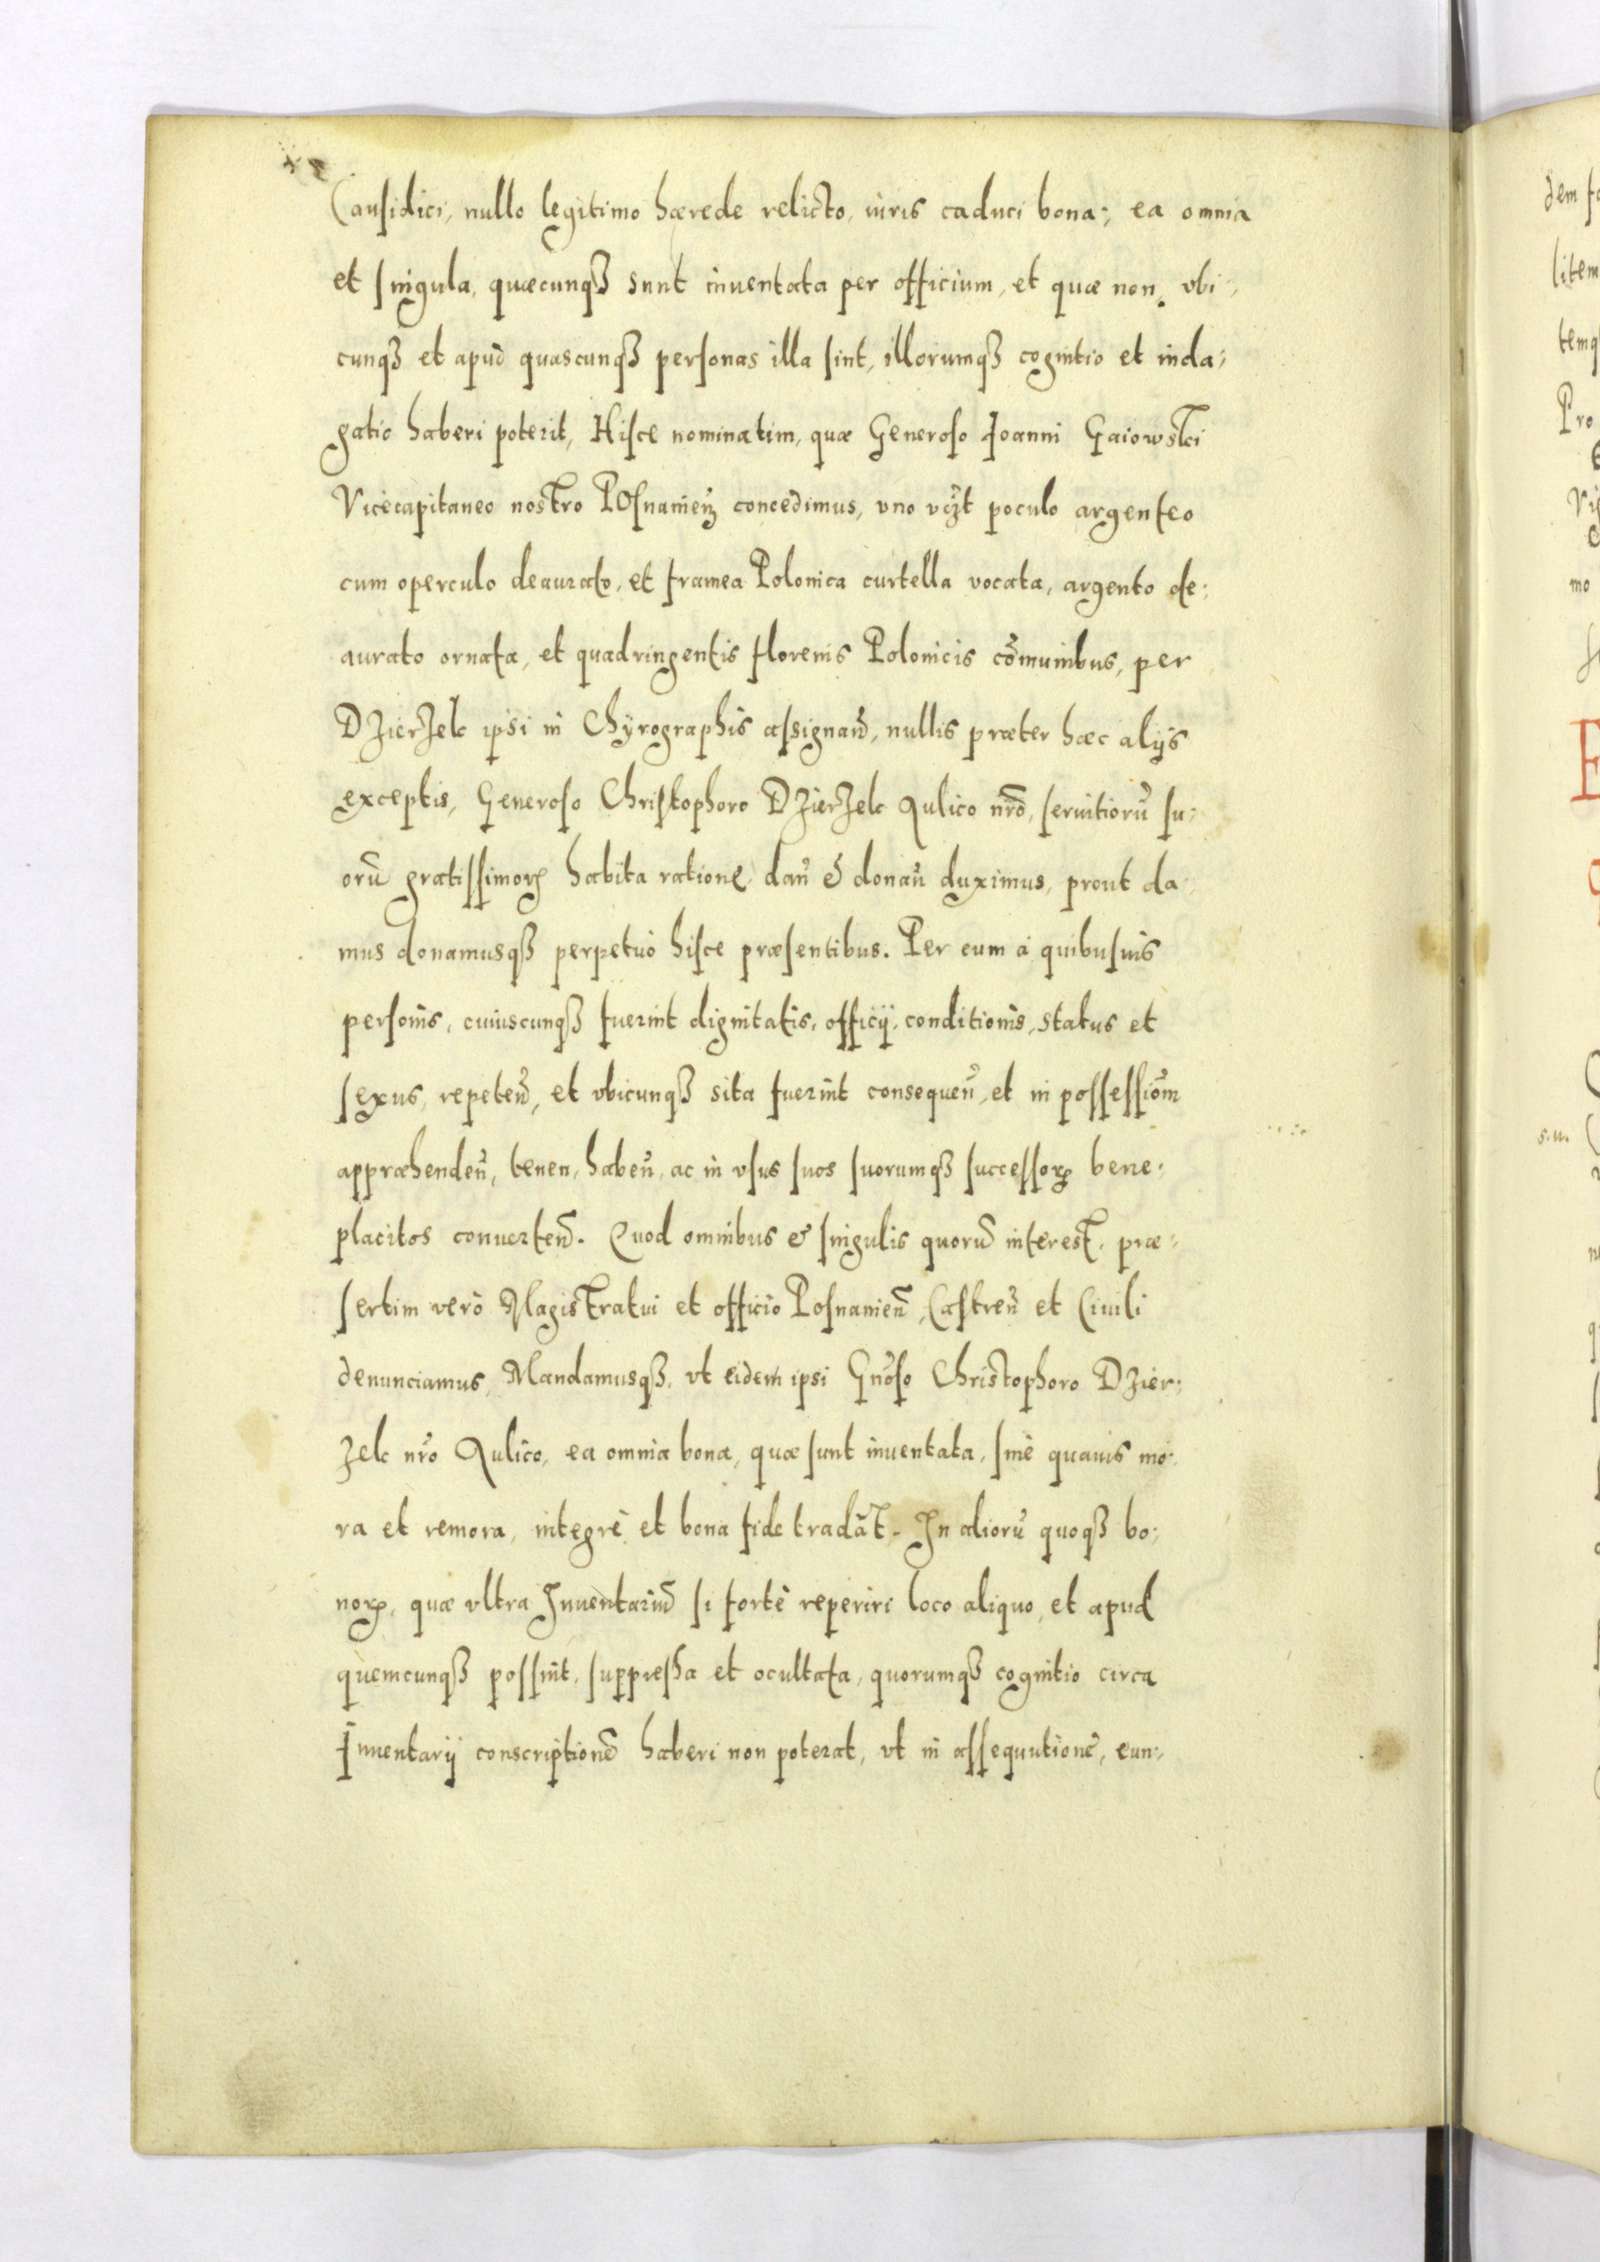 Causidici, nullo legitimo hærede relicto, iuris caduci bona; ea omnia
et singula, quæcunqꝫ sunt inuentata per officium, et quæ non, vbi-
cunqꝫ et apud quascunqꝫ personas illa sint, illorumqꝫ cognitio et inda-
gatio haberi poterit, Hisce nominatim, quæ Generoso Joanni Gaiowski
Vicecapitaneo nostro Posnanienꝫ concedimus, vno vꝫt poculo argenteo
cum operculo deaurato, et framea Polonica curtella vocata, argento de-
aurato ornata, et quadringentis florenis Polonicis cōmunibus, per
Dzierzek ipsi in Chyrographis assignañ, nullis præter hæc alijs
exceptis, Generoso Christophoro Dzierzek Aulico nr̃o, seruitiorū su-
orū gratissimoꝝ habita ratione, dañ & donañ duximus, prout da-
mus donamusqꝫ perpetuò hisce præsentibus. Per eum à quibusuis
personis, cuiuscunqꝫ fuerint dignitatis, officij, conditionis, status et
sexus, repeteñ, et vbicunqꝫ sita fuerint consequeñ, et in possessiõm
appræhendeñ, tenen, habeñ, ac in vsus suos suorumqꝫ successoꝝ bene-
placitos conuerteñ. Quod omnibus & singulis quorū interest, præ-
sertim verò Magistratui et officio Posnanieñ, Castreñ et Ciuili
denunciamus, Mandamusqꝫ, vt eidem ipsi Gnõso Christophoro Dzier-
zek nr̃o Aulico, ea omnia bona, quæ sunt inuentata, sinè quauis mo-
ra et remora, integrè et bona fide tradāt. In aliorū quoqꝫ bo-
noꝝ, quæ vltra Inuentariū si fortè reperiri loco aliquo, et apud
quemcunqꝫ possint, suppressa et ocultata, quorumqꝫ cognitio circa
Inuentarij conscriptionē haberi non poterat, vt in assequutionē, eun-